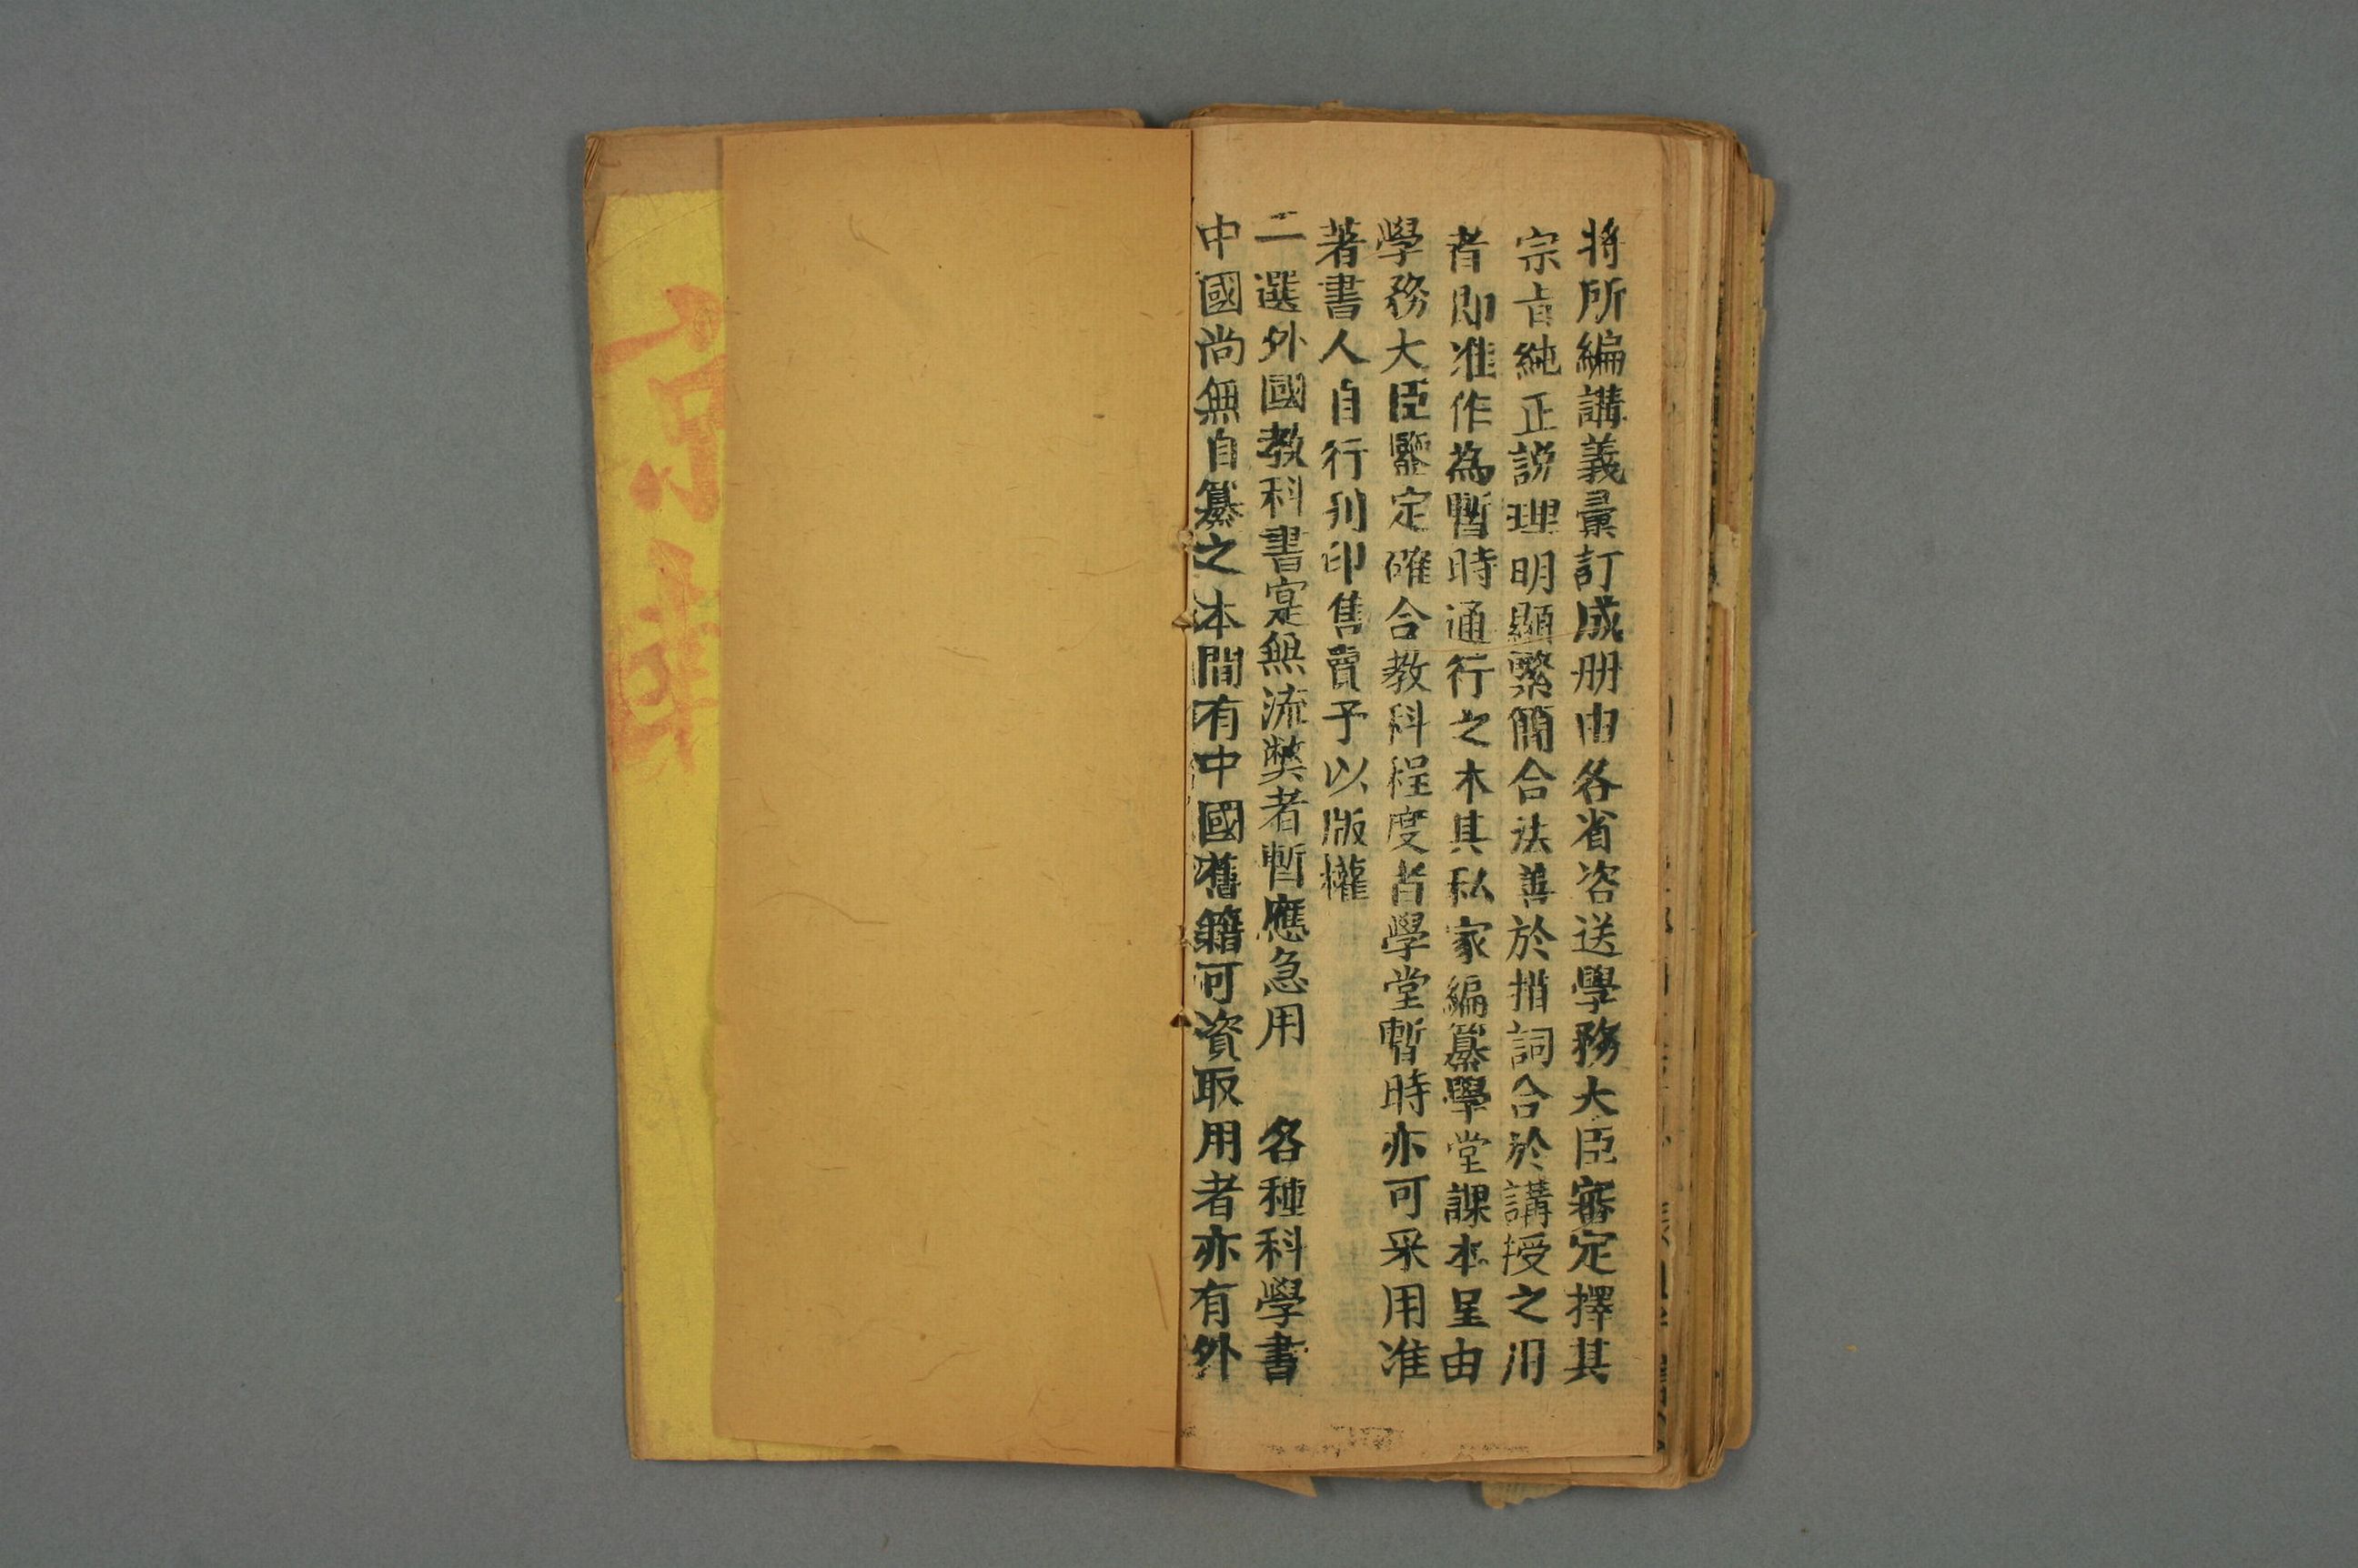 將所編講義彙訂成册由各省咨送學務大臣審定擇其
宗旨純正說理明顯繁簡合法善於措詞合於講授之用
者即准作為暫時通行之本其私家編纂學堂課本呈由
學務大臣鑒定確合教科程度者學堂暫時亦可采用准
著書人自行刋印售賣予以版權
二選外國教科書寔無流弊者暫應急用　各種科學書
中國尚無自纂之本間有中國舊籍可資取用者亦有外
京報